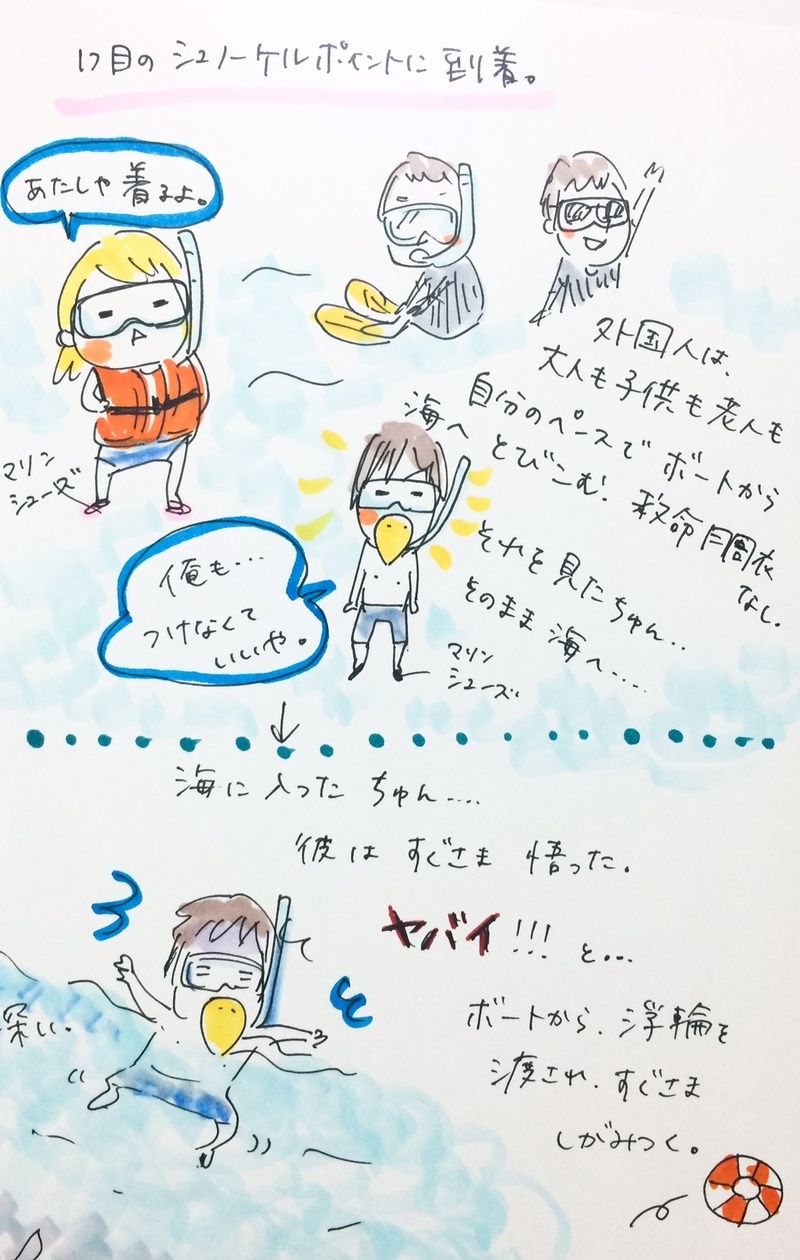 1つ目のシュノーケルポイントに到着。
あたしゃ着るよ。
マリン
シューズ
外国人は、
大人も子供も老人も
自分のペースでボートから
海へとびこむ。救命胴衣
なし。
それを見たちゅん..
そのまま海へ....
俺も...
つけなくて
いいや。
マリン
シューズ
海に入ったちゅん....
彼はすぐさま悟った。
ヤバイ!!!と...
深い.
ボートから、浮輪を
渡され、すぐさま
しがみつく。